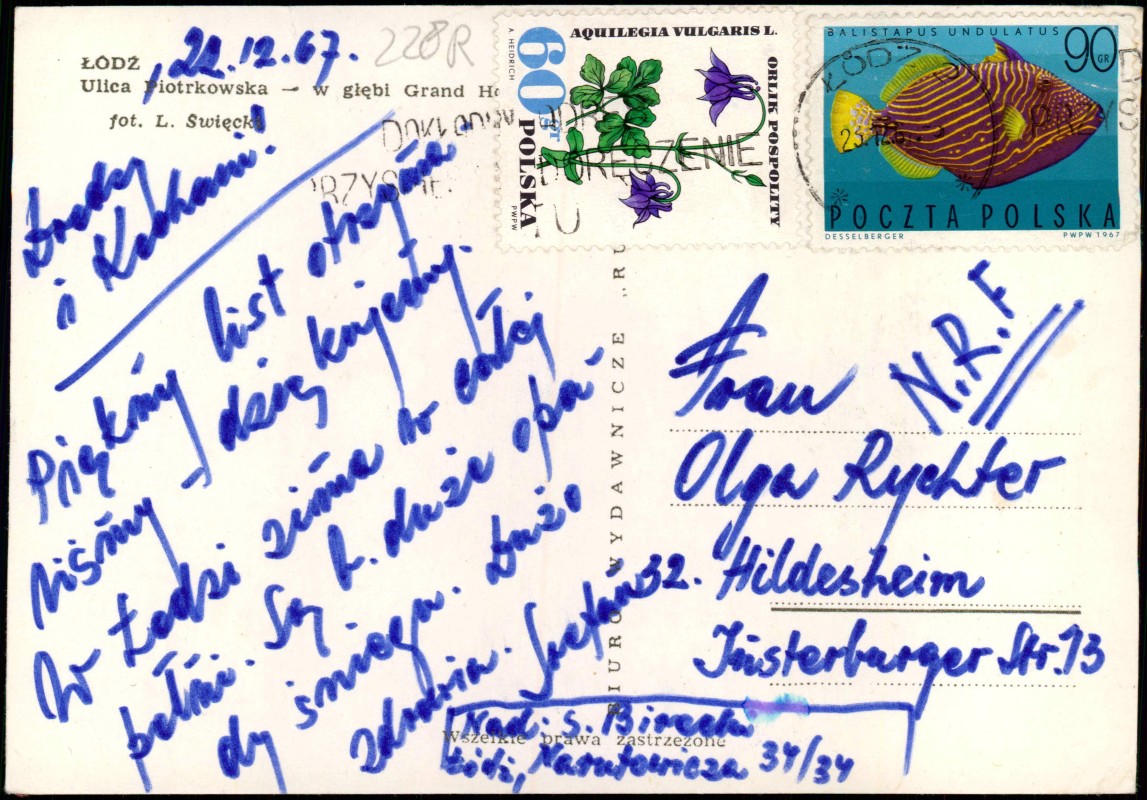 ŁÓDŹ
, 22.12.67.
228R
Ulica Piotrkowska — w głębi Grand Ho
fot. L. Święcki
Drodzy
i Kochani!
Piękny list otrzyma
liśmy – dzię kujemy.
W Łodzi zima w całej
pełni. Są b. duże opa-
dy śniegu. Dużo
zdrowia. Stefan
AQUILEGIA VULGARIS L.
ORLIK POSPOLITY
60 GR
POLSKA
A. HEIDRICH
PWPW
BALISTAPUS UNDULATUS
90 GR
POCZTA POLSKA
DESSELBERGER
PWPW 1967
ŁÓDŹ
DORĘCZENIE
BIURO WYDAWNICZE „RU
Frau
N.R.F
Olga Rychter
32. Hildesheim
Insterburger Str. 13
Nad. S.
Łódź, Narutowicza 34/34
Wszelkie prawa zastrzeżone